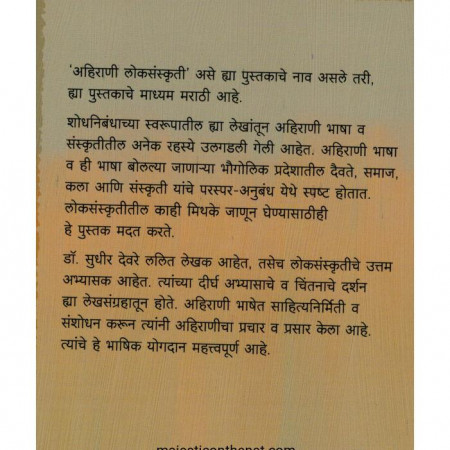 'अहिराणी लोकसंस्कृती' असे ह्या पुस्तकाचे नाव असले तरी,
ह्या पुस्तकाचे माध्यम मराठी आहे.
शोधनिबंधाच्या स्वरूपातील ह्या लेखांतून अहिराणी भाषा व
संस्कृतीतील अनेक रहस्ये उलगडली गेली आहेत. अहिराणी भाषा
व ही भाषा बोलल्या जाणाऱ्या भौगोलिक प्रदेशातील दैवते, समाज,
कला आणि संस्कृती यांचे परस्पर-अनुबंध येथे स्पष्ट होतात.
लोकसंस्कृतीतील काही मिथके जाणून घेण्यासाठीही
हे पुस्तक मदत करते.
डॉ. सुधीर देवरे ललित लेखक आहेत, तसेच लोकसंस्कृतीचे उत्तम
अभ्यासक आहेत. त्यांच्या दीर्घ अभ्यासाचे व चिंतनाचे दर्शन
ह्या लेखसंग्रहातून होते. अहिराणी भाषेत साहित्यनिर्मिती व
संशोधन करून त्यांनी अहिराणीचा प्रचार व प्रसार केला आहे.
त्यांचे हे भाषिक योगदान महत्त्वपूर्ण आहे.
majesticonthenet.com